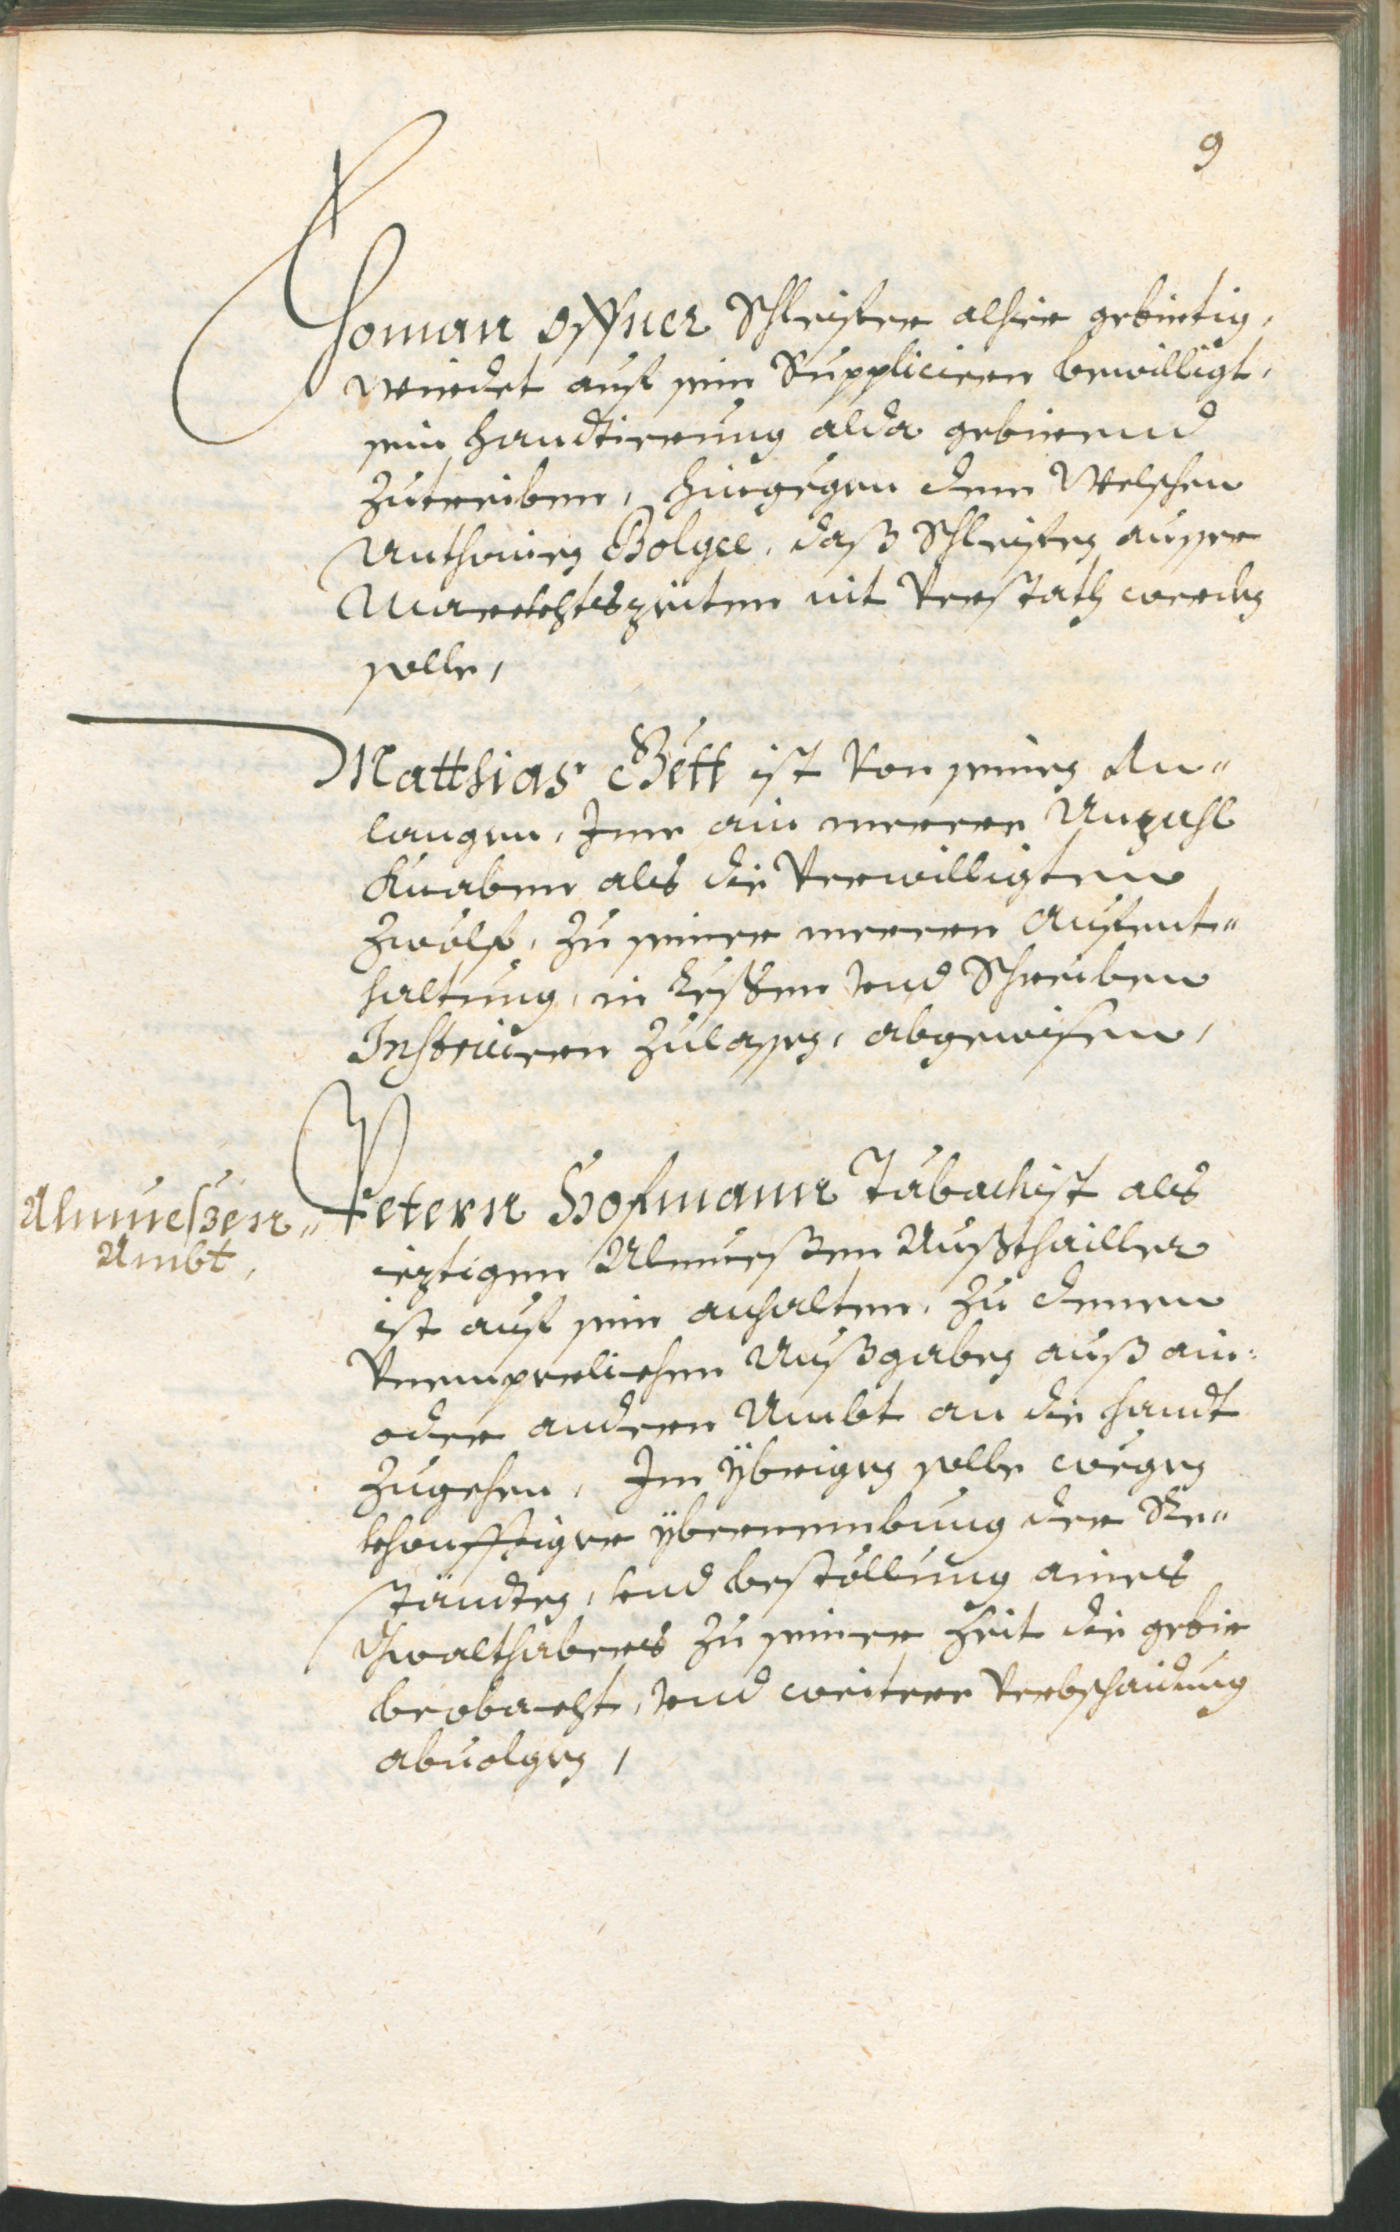 9
Thoman Offner Schleifer alhie gebirtig,
wierdet auf sein Suppliciern bewilligt,
sein handtierung alda gebierend
zutreiben, hingegen dem Welschen
Anthonien Bolgee, daß Schleifen ausser
Marckhtszeiten nit verstath werden
solle,
Matthias Gött ist von seinen An"
langen, Ime ain merere Anzahl
Knaben als die verwilligten
zwölf, zu seiner merern aufent"
haltung, in Leßen vnd Schreiben
Instruiern zulassen, abgewisen,
Almueßen"
Ambt,
Petern Hofmann Tabackhist als
ieztigen Almueßen Außthailler
ist auf sein anhalten, zu denen
vnempörlichen Außgaben auß ain
oder andern Ambt an die handt
zugehen, Im ÿbrigen solle wegen
khonfftiger ÿbernembung der Re"
ständten, vnd bestöllung aines
Gwalthabers zu seiner Zeit die gebir
beobacht, vnd weitere verbschaidung
abuolgen,